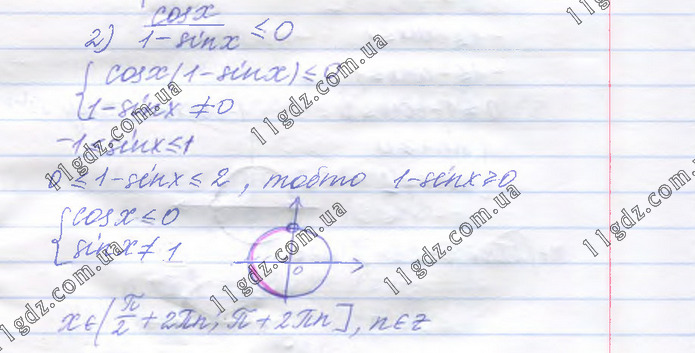 2) cosx/(1-sinx) ≤ 0
{ cosx(1-sinx) ≤ 0
1-sinx ≠ 0
-1 ≤ sinx ≤ 1
0 ≤ 1-sinx ≤ 2, тобто 1-sinx ≥ 0
{ cosx ≤ 0
sinx ≠ 1
0
x ∈ (π/2 + 2πn; π + 2πn], n ∈ z
11gdz.com.ua
11gdz.com.ua
11gdz.com.ua
11gdz.com.ua
11gdz.com.ua
11gdz.com.ua
11gdz.com.ua